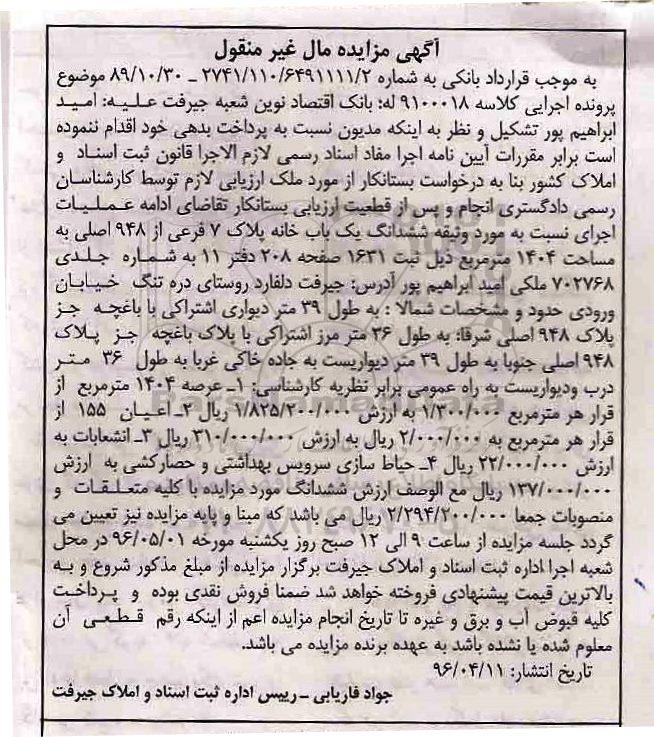 آگهی مزایده مال غیر منقول
به موجب قرارداد بانکی به شماره ۲۷۴۱/۱۱۰/۶۴۹۱۱۱۱/۲ ـ ۸۹/۱۰/۳۰ موضوع
پرونده اجرایی کلاسه ۹۱۰۰۰۱۸ له: بانک اقتصاد نوین شعبه جیرفت علیه: امید
ابراهیم پور تشکیل و نظر به اینکه مدیون نسبت به پرداخت بدهی خود اقدام ننموده
است برابر مقررات آیین نامه اجرا مفاد اسناد رسمی لازم الاجرا قانون ثبت اسناد و
املاک کشور بنا به درخواست بستانکار از مورد ملک ارزیابی لازم توسط کارشناسان
رسمی دادگستری انجام و پس از قطعیت ارزیابی بستانکار تقاضای ادامه عملیات
اجرای نسبت به مورد وثیقه ششدانگ یک باب خانه پلاک ۷ فرعی از ۹۴۸ اصلی به
مساحت ۱۴۰۴ مترمربع ذیل ثبت ۱۶۳۱ صفحه ۲۰۸ دفتر ۱۱ به شماره جلدی
۷۰۲۷۶۸ ملکی امید ابراهیم پور آدرس: جیرفت دلفارد روستای دره تنگ خیابان
ورودی حدود و مشخصات شمالا : به طول ۳۹ متر دیواری اشتراکی با باغچه جز
پلاک ۹۴۸ اصلی شرقا: به طول ۳۶ متر مرز اشتراکی با پلاک باغچه جز پلاک
۹۴۸ اصلی جنوبا به طول ۳۹ متر دیواریست به جاده خاکی غربا به طول ۳۶ متر
درب ودیواریست به راه عمومی برابر نظریه کارشناسی: ۱ـ عرصه ۱۴۰۴ مترمربع از
قرار هر مترمربع ۱/۳۰۰/۰۰۰ به ارزش ۱/۸۲۵/۲۰۰/۰۰۰ ریال ۲ـ اعیان ۱۵۵ از
قرار هر مترمربع به ۲/۰۰۰/۰۰۰ ریال به ارزش ۳۱۰/۰۰۰/۰۰۰ ریال ۳ـ انشعابات به
ارزش ۲۲/۰۰۰/۰۰۰ ریال ۴ـ حیاط سازی سرویس بهداشتی و حصارکشی به ارزش
۱۳۷/۰۰۰/۰۰۰ ریال مع الوصف ارزش ششدانگ مورد مزایده با کلیه متعلقات و
منصوبات جمعا ۲/۲۹۴/۲۰۰/۰۰۰ ریال می باشد که مبنا و پایه مزایده نیز تعیین می
گردد جلسه مزایده از ساعت ۹ الی ۱۲ صبح روز یکشنبه مورخه ۹۶/۰۵/۰۱ در محل
شعبه اجرا اداره ثبت اسناد و املاک جیرفت برگزار مزایده از مبلغ مذکور شروع و به
بالاترین قیمت پیشنهادی فروخته خواهد شد ضمنا فروش نقدی بوده و پرداخت
کلیه قبوض آب و برق و غیره تا تاریخ انجام مزایده اعم از اینکه رقم قطعی آن
معلوم شده یا نشده باشد به عهده برنده مزایده می باشد.
تاریخ انتشار: ۹۶/۰۴/۱۱
جواد فاریابی ـ رییس اداره ثبت اسناد و املاک جیرفت